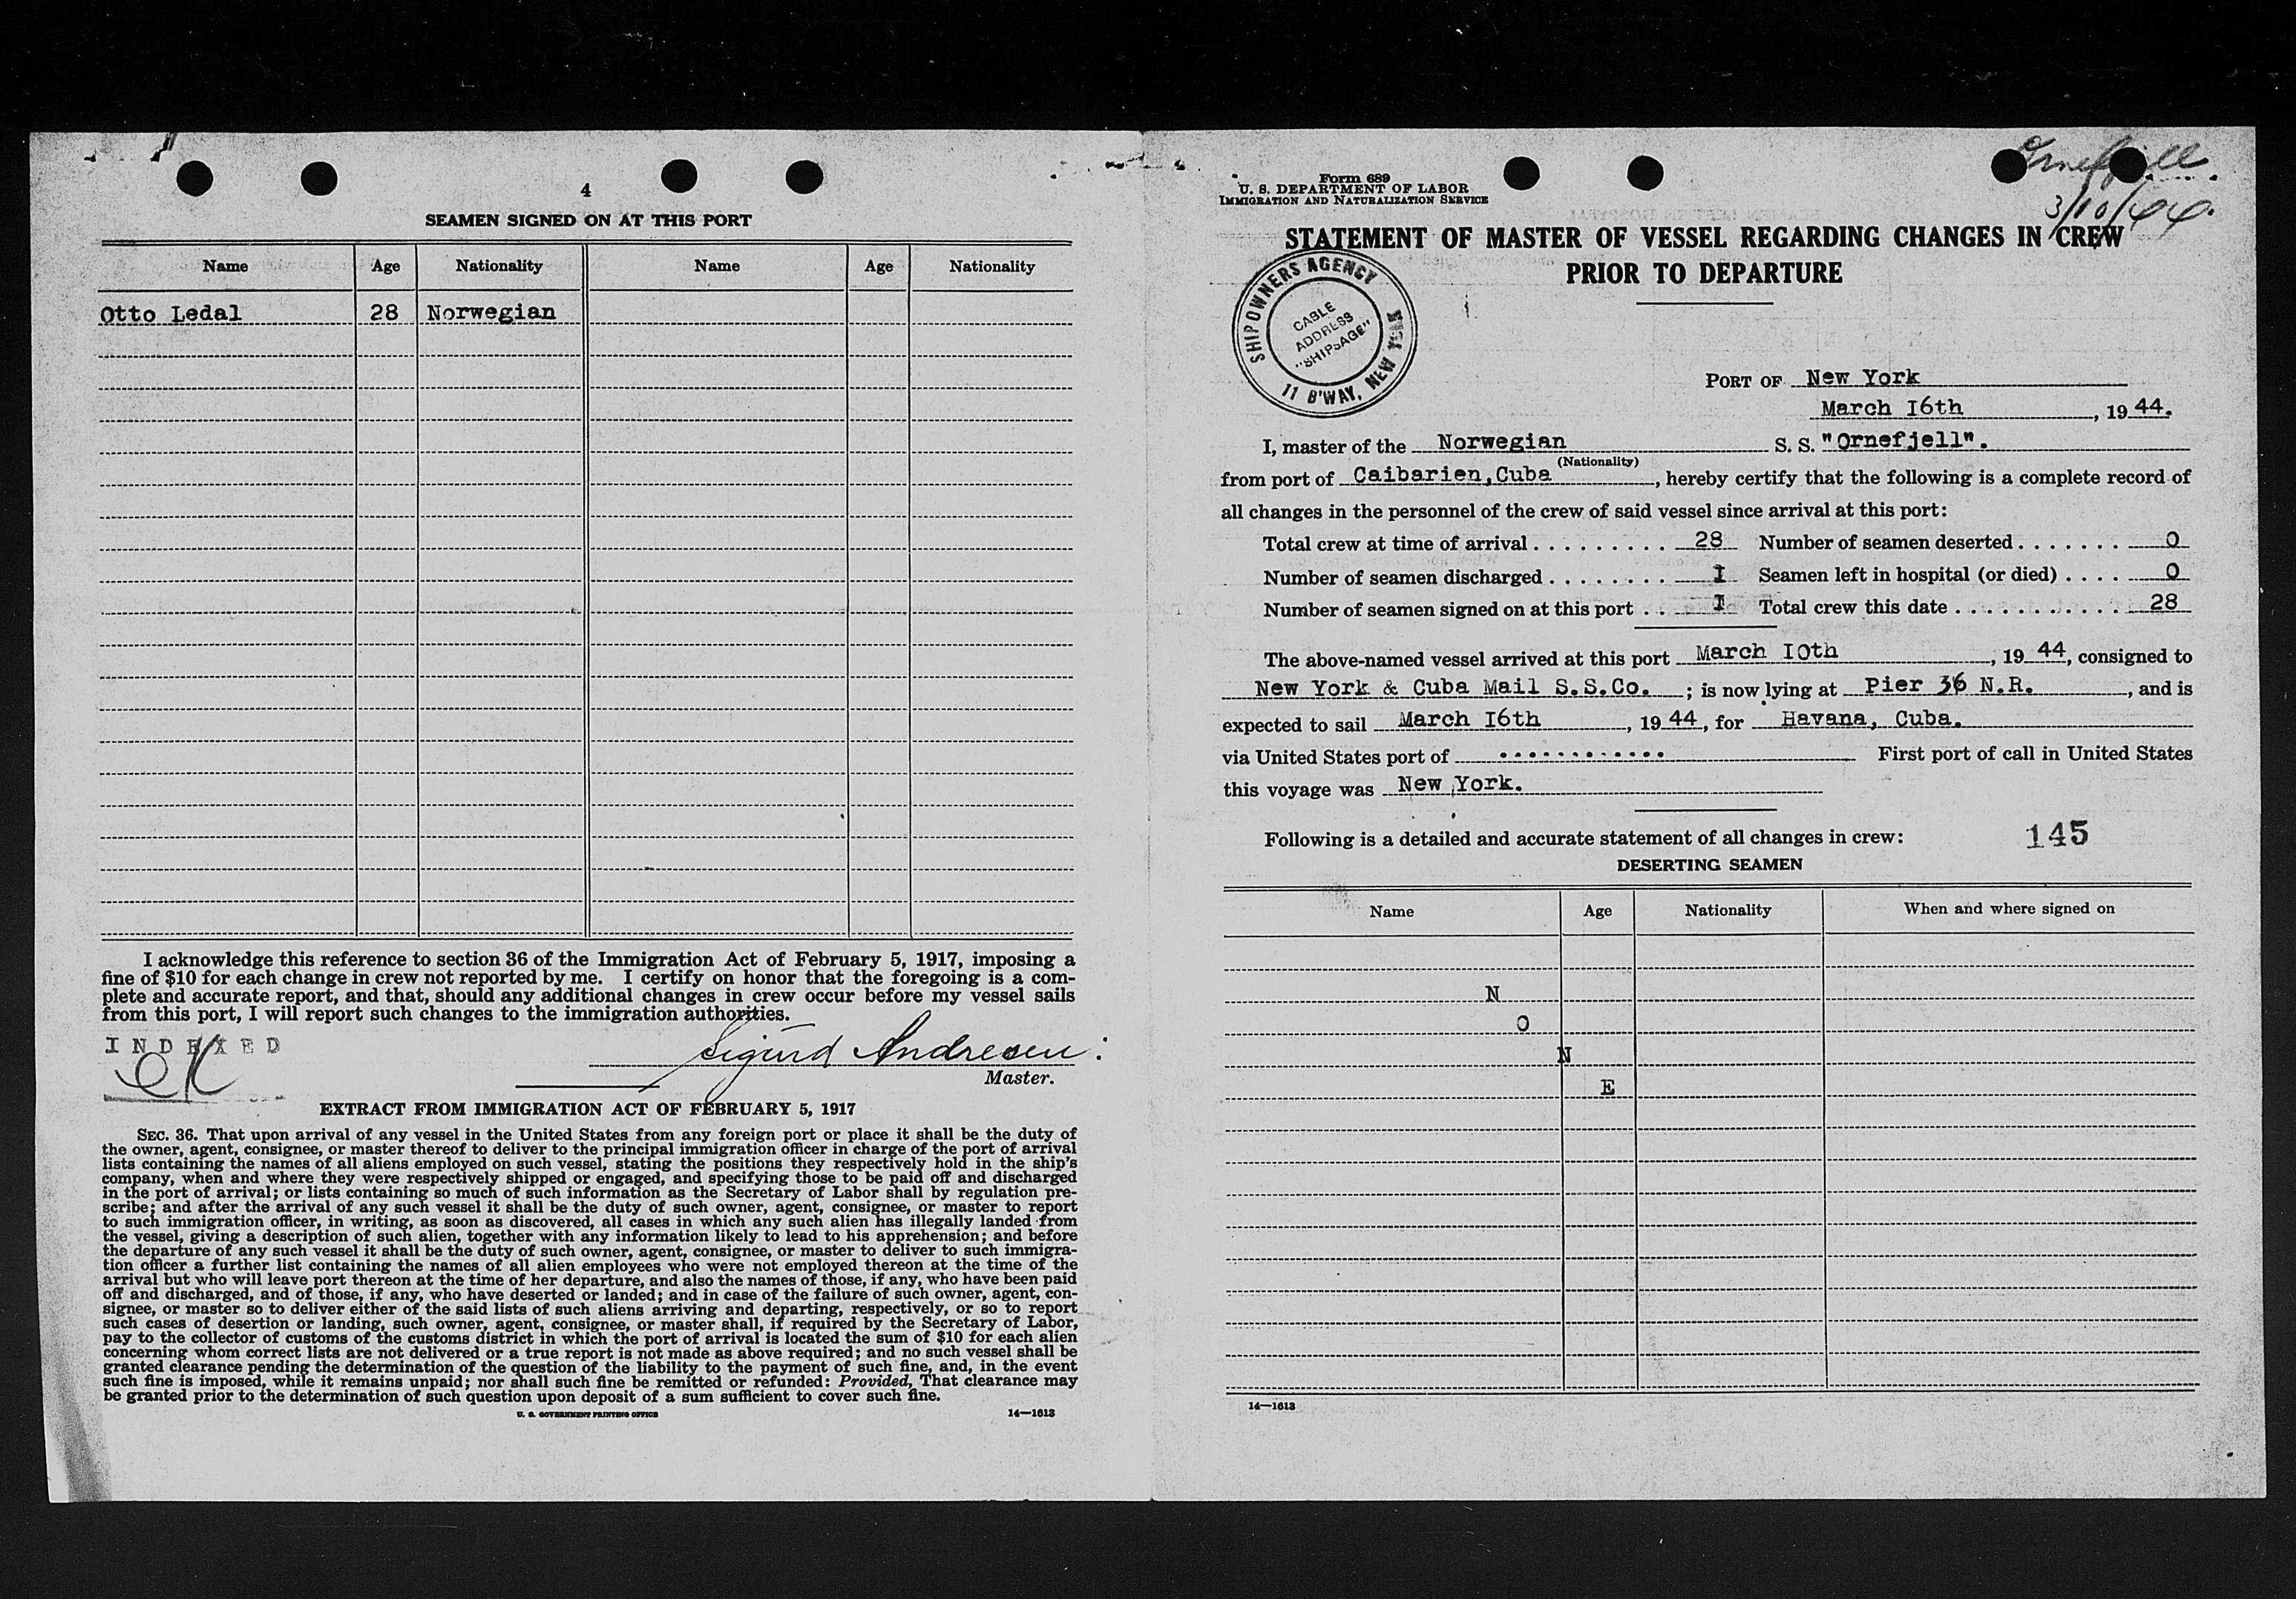 4
SEAMEN SIGNED ON AT THIS PORT
Name Age Nationality Name Age Nationality
Otto Ledal 28 Norwegian
I acknowledge this reference to section 36 of the Immigration Act of February 5, 1917, imposing a
fine of $10 for each change in crew not reported by me. I certify on honor that the foregoing is a com-
plete and accurate report, and that, should any additional changes in crew occur before my vessel sails
from this port, I will report such changes to the immigration authorities.
INDEXED
Sigurd Andresen
Master.
EXTRACT FROM IMMIGRATION ACT OF FEBRUARY 5, 1917
SEC. 36. That upon arrival of any vessel in the United States from any foreign port or place it shall be the duty of
the owner, agent, consignee, or master thereof to deliver to the principal immigration officer in charge of the port of arrival
lists containing the names of all aliens employed on such vessel, stating the positions they respectively hold in the ship's
company, when and where they were respectively shipped or engaged, and specifying those to be paid off and discharged
in the port of arrival; or lists containing so much of such information as the Secretary of Labor shall by regulation pre-
scribe; and after the arrival of any such vessel it shall be the duty of such owner, agent, consignee, or master to report
to such immigration officer, in writing, as soon as discovered, all cases in which any such alien has illegally landed from
the vessel, giving a description of such alien, together with any information likely to lead to his apprehension; and before
the departure of any such vessel it shall be the duty of such owner, agent, consignee, or master to deliver to such immigra-
tion officer a further list containing the names of all alien employees who were not employed thereon at the time of the
arrival but who will leave port thereon at the time of her departure, and also the names of those, if any, who have been paid
off and discharged, and of those, if any, who have deserted or landed; and in case of the failure of such owner, agent, con-
signee, or master so to deliver either of the said lists of such aliens arriving and departing, respectively, or so to report
such cases of desertion or landing, such owner, agent, consignee, or master shall, if required by the Secretary of Labor,
pay to the collector of customs of the customs district in which the port of arrival is located the sum of $10 for each alien
concerning whom correct lists are not delivered or a true report is not made as above required; and no such vessel shall be
granted clearance pending the determination of the question of the liability to the payment of such fine, and, in the event
such fine is imposed, while it remains unpaid; nor shall such fine be remitted or refunded: Provided, That clearance may
be granted prior to the determination of such question upon deposit of a sum sufficient to cover such fine.
U. S. GOVERNMENT PRINTING OFFICE 14—1613
Ornefjell
3/10/44.
Form 689
U. S. DEPARTMENT OF LABOR
IMMIGRATION AND NATURALIZATION SERVICE
STATEMENT OF MASTER OF VESSEL REGARDING CHANGES IN CREW
PRIOR TO DEPARTURE
SHIPOWNERS AGENCY
CABLE
ADDRESS
"SHIPSAGE"
11 B'WAY, NEW YORK
PORT OF New York
March 16th, 1944.
I, master of the Norwegian S. S. "Ornefjell".
(Nationality)
from port of Caibarien,Cuba, hereby certify that the following is a complete record of
all changes in the personnel of the crew of said vessel since arrival at this port:
Total crew at time of arrival . . . . . . . . . 28 Number of seamen deserted . . . . . . . 0
Number of seamen discharged . . . . . . . . I Seamen left in hospital (or died) . . . . 0
Number of seamen signed on at this port . . I Total crew this date . . . . . . . . . . . . 28
The above-named vessel arrived at this port March 10th, 1944, consigned to
New York & Cuba Mail S.S.Co. ; is now lying at Pier 36 N.R., and is
expected to sail March 16th, 1944, for Havana, Cuba.
via United States port of ............ First port of call in United States
this voyage was New York.
Following is a detailed and accurate statement of all changes in crew: 145
DESERTING SEAMEN
Name Age Nationality When and where signed on
N
O
N
E
14—1613